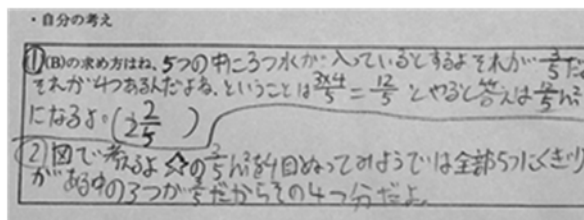 ・自分の考え
①(B)の求め方はね、5つの中に3つ水が入っているとするよそれが3/5だ
それが4つあるんだよね、ということは3×4/5=12/5とやると答えは12/5m²
になるよ。(2 2/5)
②図で考えるよ☆の3/5m²を4回ぬってみようでは全部5つにくぎり
がある中の3つが3/5だからその4つ分だよ